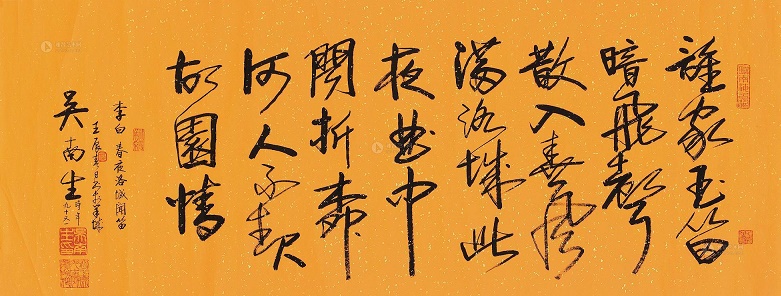 誰家玉笛
暗飛聲
散入春風
滿洛城此
夜曲中
聞折柳
何人不起
故園情
李白春夜洛城聞笛
壬辰春日於羊城
吴南生